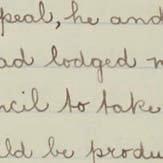 peal, he and
ad lodged
ncil to take
ld be produ